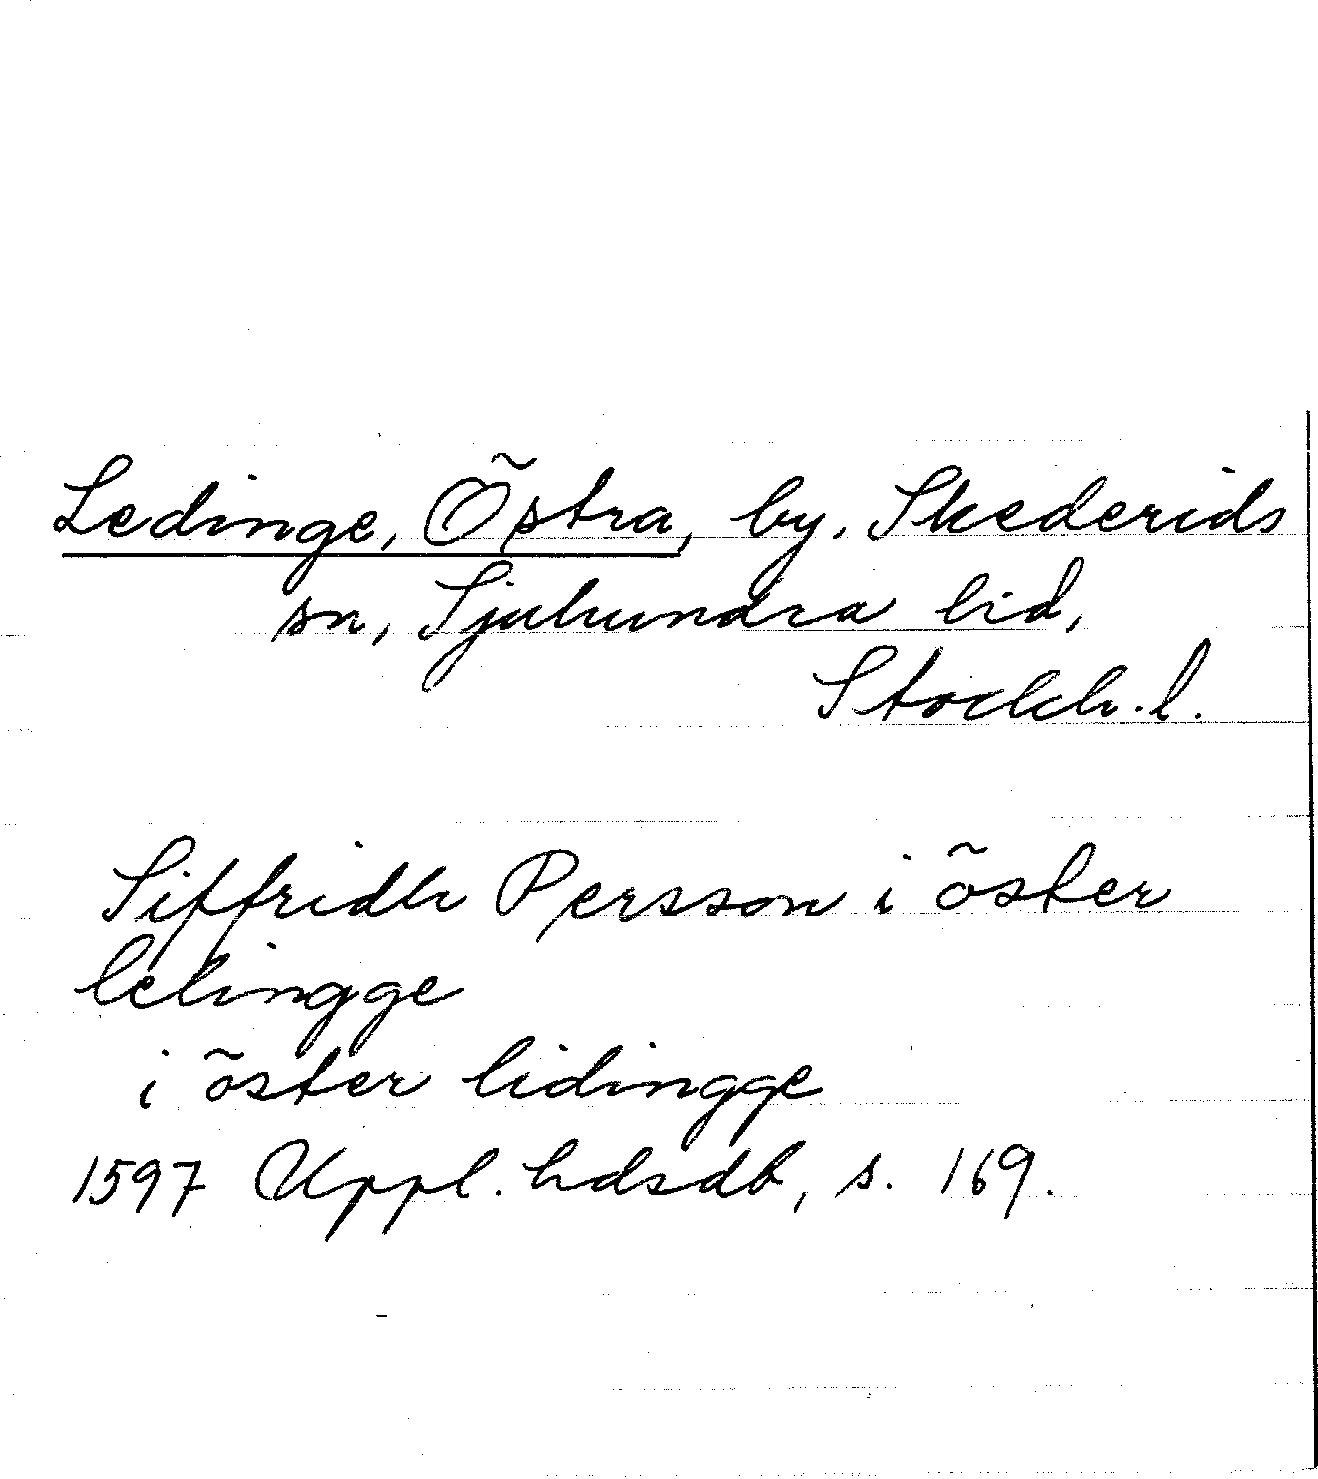 Ledinge, Östra, by, Skederids
sn, Sjuhundra lid,
Stockh. l.
Siffridh Persson i öster
lelingge
i öster lidingge
1597 Uppl. hdsdb, s. 169.